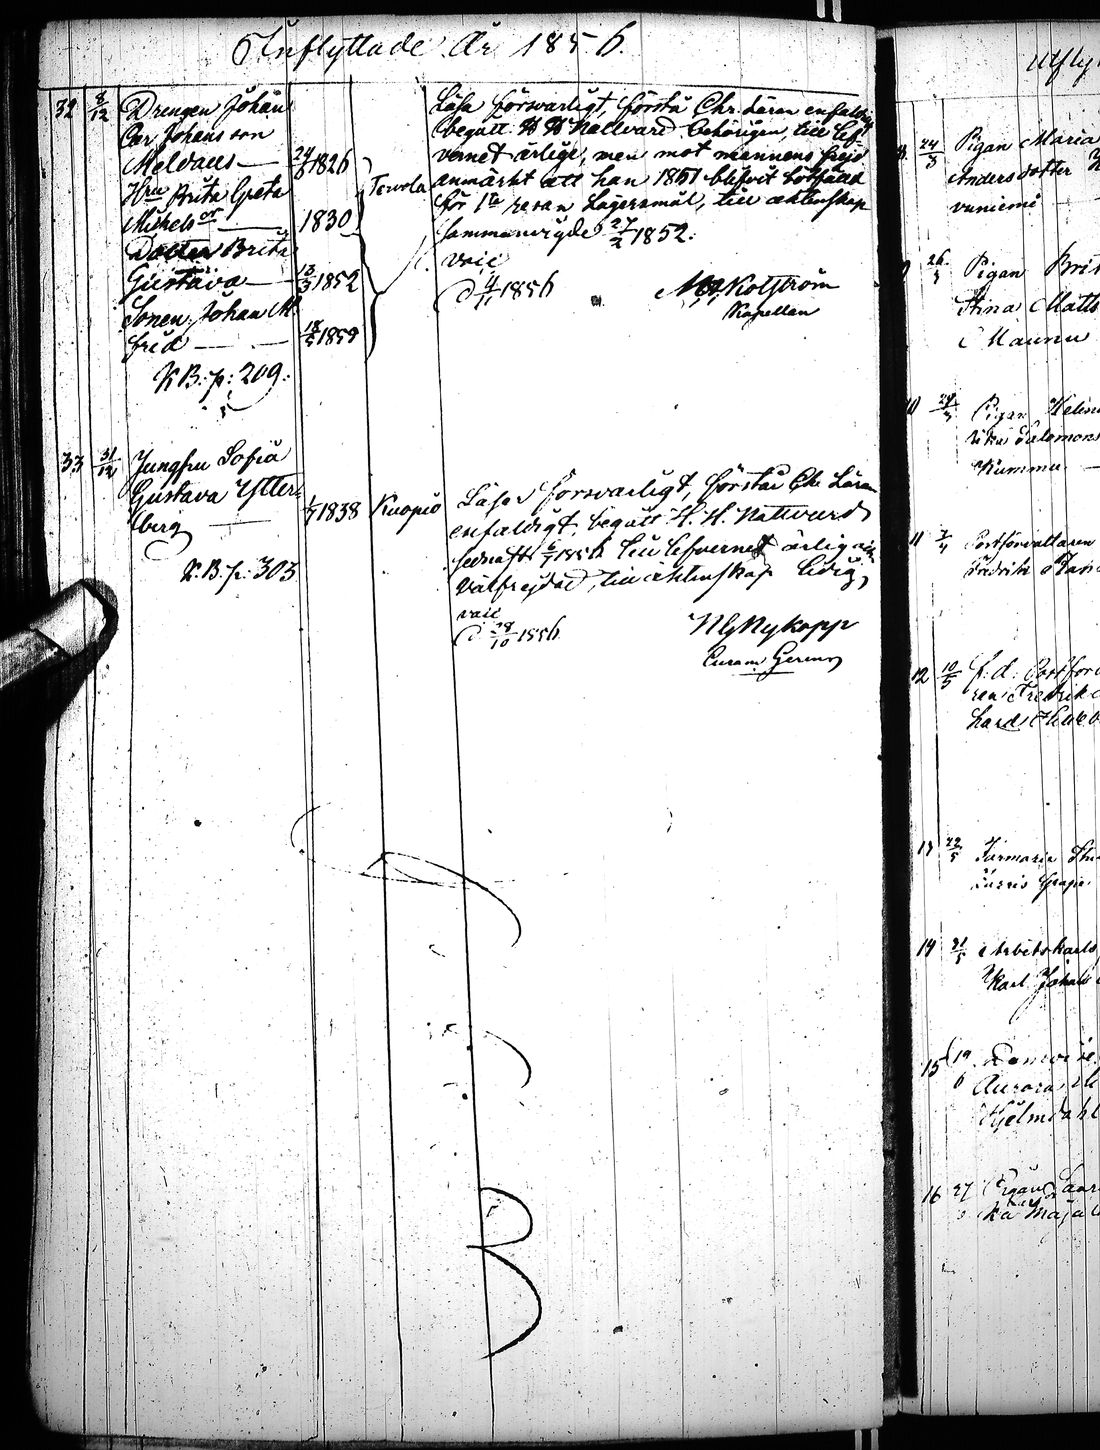 Inflyttade År 1856.
32 8/12 Drengen Johan
Per Johansson
Meldaus — 24/6 1826
Hru Brita Greta
Mickelsdr — 1830
Dotter Brita
Gustava — 13/3 1852
Sonen Johan Al
fred — 1859
K.B. p: 209.
Tervola
Läsa försvarligt, förstå Chr. Läran enfaldigt
begått H H Nattvard behörigen, till lef
vernet ärlige, men mot mannens frejd
anmärkt att han 1851 blifvit bötfäld
för 1sta resan Lägersmål, till äktenskap
sammanvigde 27/2 1852.
vaie
d 4/11 1856
Kolström
Kapellan
33 31/12 Jungfru Sofia
Gustava Ytter
berg — 1838 Kuopio
K.B. p: 303
Läser försvarligt, förstår Chr Läran
enfaldigt, begått H. H. Nattvard
sednast 1856 till lefvernet ärlig och
välfrejdad, till äktenskap ledig,
vaie
d 28/10 1856
Nykopp
Curam Gerens
24/3 Pigan Maria
Anders dotter
vaniemi
26/3 Pigan
Stina Matts
Maunu
10 Pigan Helena
rika Salomons
Kummu —
11 Postförvaltaren
Fredrik
12 10/5 f. d. Postför
ren Fredrik
hard
13 22/5
14 31/5 Arbetskarls
Karl Johan
15 19/6
Aurora
Hjelmdahl
16 27 Pigan
ka Maja